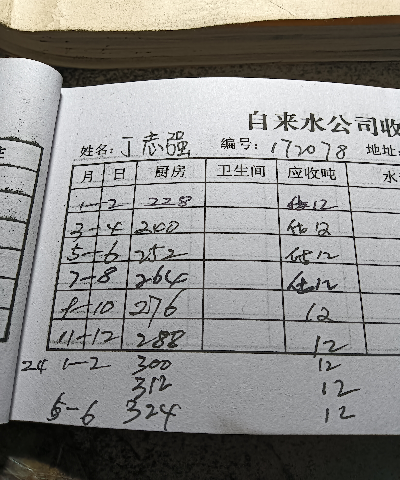 自来水公司收
姓名: 丁志强 编号: 172078 地址
月 日 厨房 卫生间 应收吨 水
1-2 228 估12
3-4 240 估12
5-6 252 估12
7-8 264 估12
9-10 276 12
11-12 288 12
24 1-2 300 12
312 12
5-6 324 12